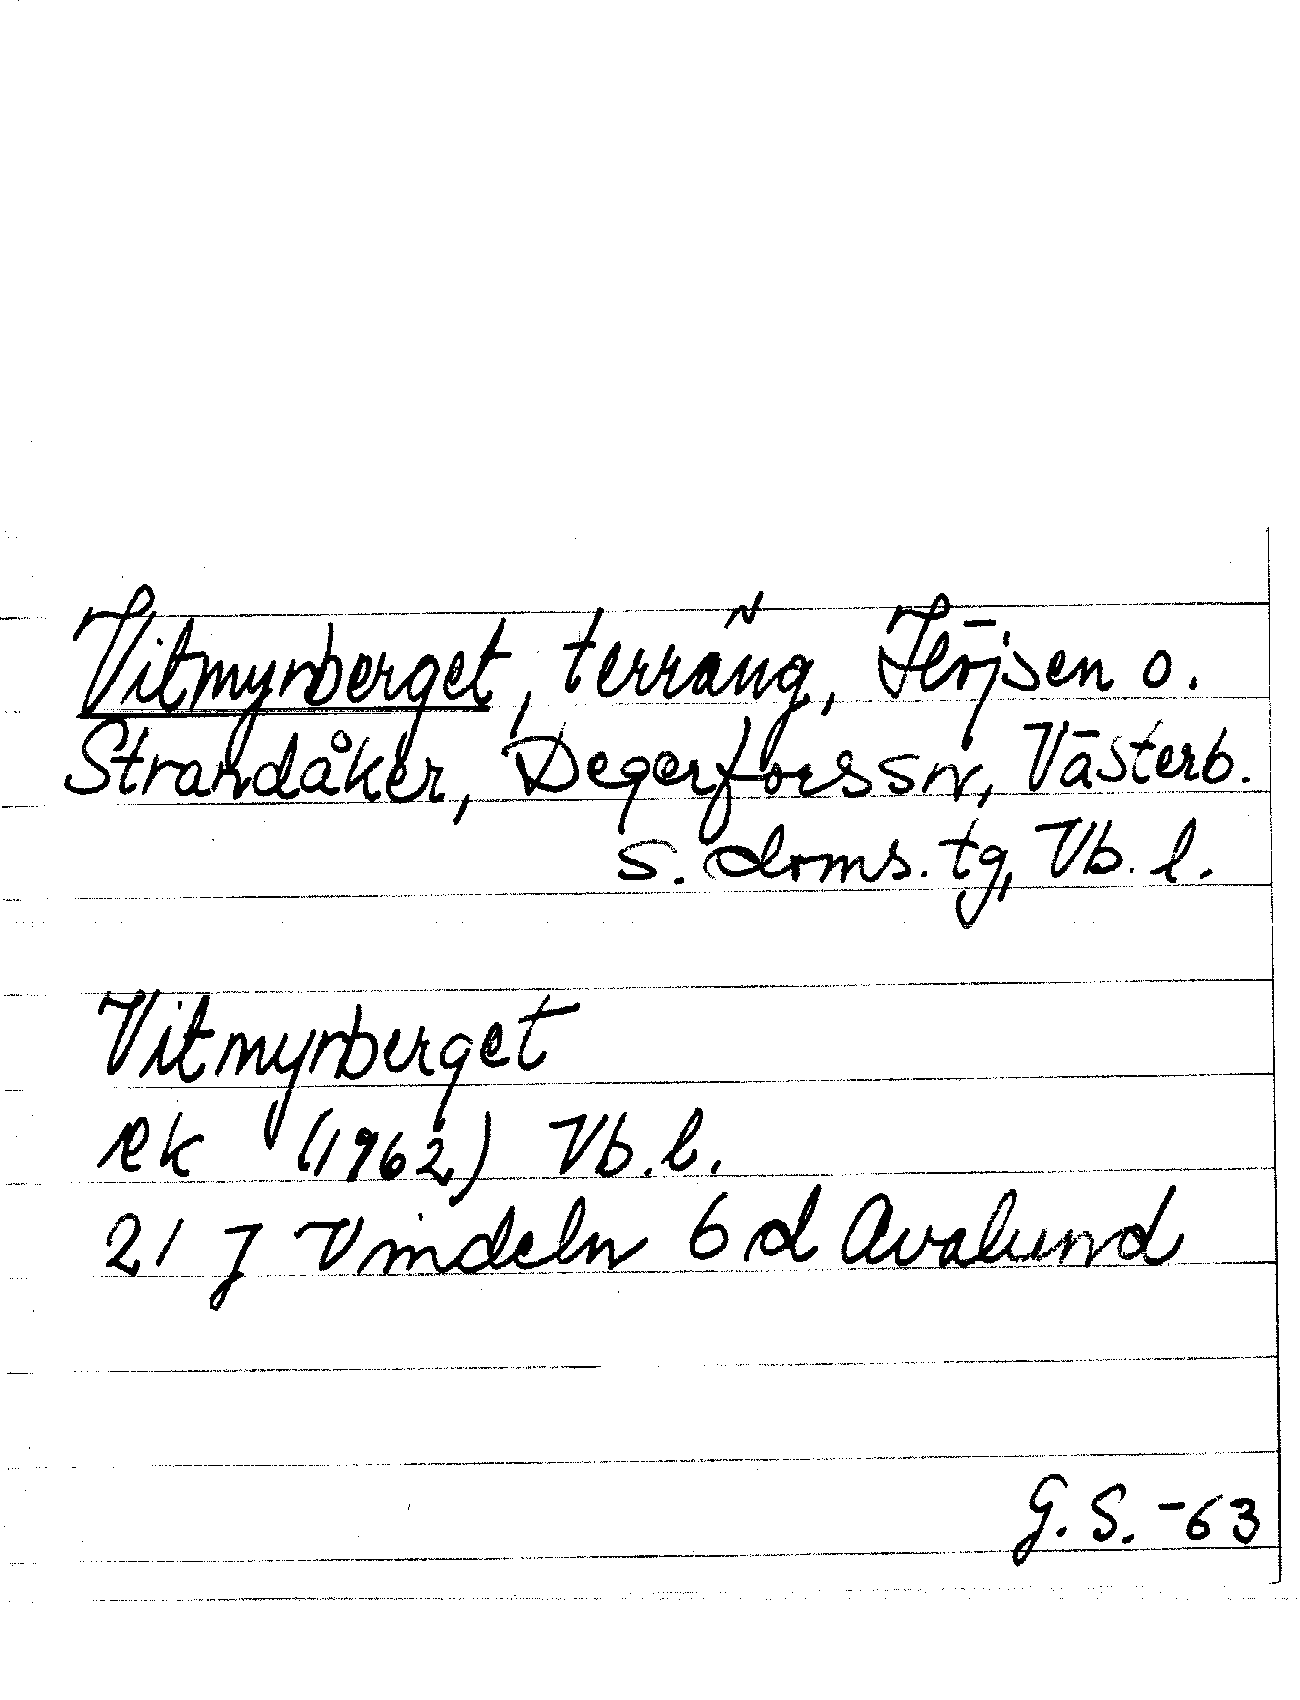 Vitmyrberget, terräng, Flöjsen o.
Strandåker, Degerfors sn, Västerb.
s. doms. tg, Vb. l.
Vitmyrberget
ek (1962) Vb. l.
21 J Vindeln 6 d Avalund
G. S. -63